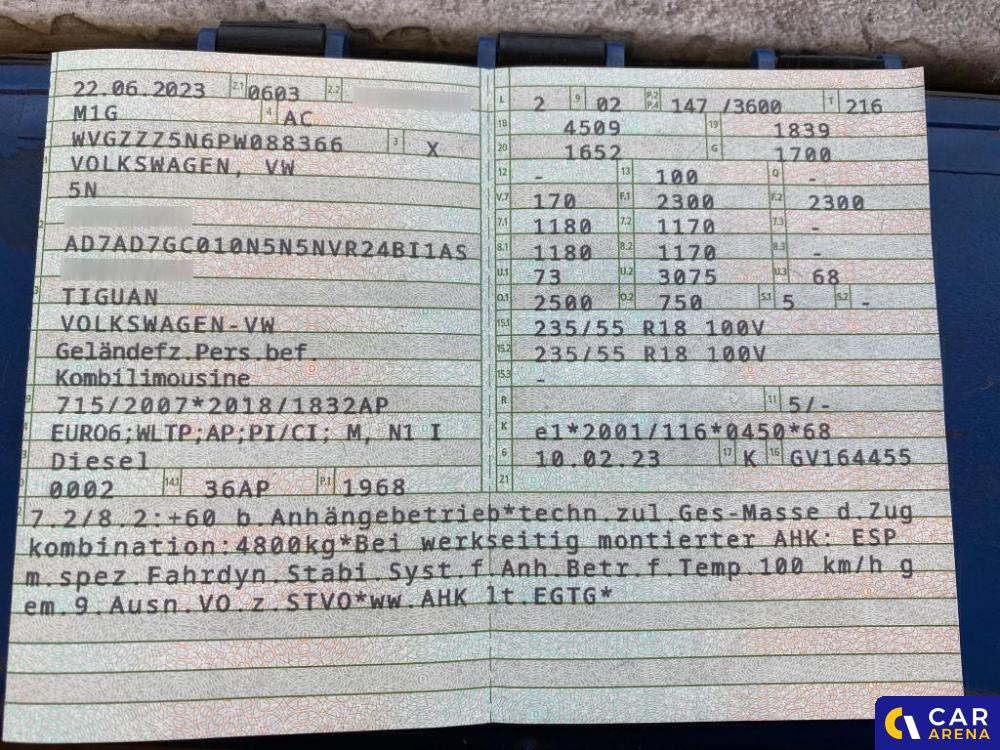 22.06.2023 2.1 0603 2.2
M1G 4 AC
WVGZZZ5N6PW088366 3 X
VOLKSWAGEN, VW
5N
AD7AD7GC010N5N5NVR24BI1AS
TIGUAN
VOLKSWAGEN-VW
Geländefz.Pers.bef.
Kombilimousine
715/2007*2018/1832AP
EURO6;WLTP;AP;PI/CI; M, N1 I
Diesel
0002 14.1 36AP P.1 1968
L 2 9 02 P.2 P.4 147 /3600 T 216
18 4509 19 1839
20 1652 G 1700
12 - 13 100 Q -
V.7 170 F.1 2300 F.2 2300
7.1 1180 7.2 1170 7.3 -
8.1 1180 8.2 1170 8.3 -
U.1 73 U.2 3075 U.3 68
O.1 2500 O.2 750 S.1 5 S.2 -
15.1 235/55 R18 100V
15.2 235/55 R18 100V
15.3 -
R 11 5/-
K e1*2001/116*0450*68
6 10.02.23 17 K 16 GV164455
21
7.2/8.2:+60 b.Anhängebetrieb*techn.zul.Ges-Masse d.Zug
kombination:4800kg*Bei werkseitig montierter AHK: ESP
m.spez.Fahrdyn.Stabi.Syst.f.Anh.Betr.f.Temp.100 km/h g
em.9.Ausn.VO.z.STVO*ww.AHK lt.EGTG*
CAR
ARENA